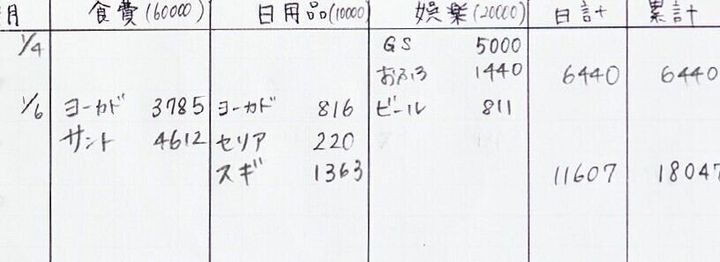 月 食費(60000) 日用品(10000) 娯楽(20000) 日計 累計
1/4 GS 5000
おふろ 1440 6440 6440
1/6 ヨーカド 3785 ヨーカド 816 ビール 811
サント 4612 セリア 220
スギ 1363 11607 18047